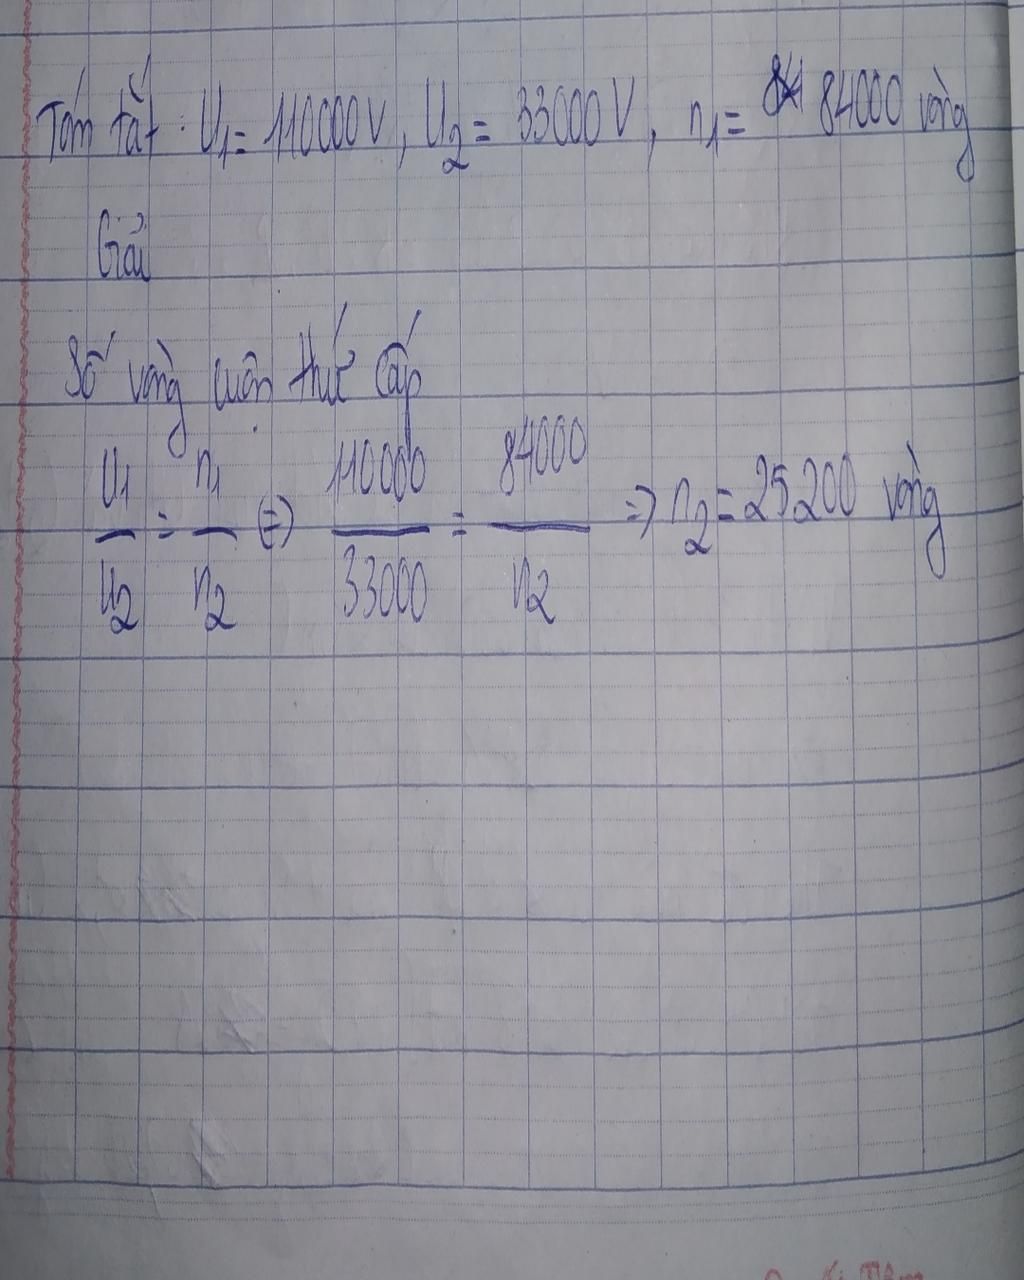 Tóm tắt: U1 = 110000V, U2 = 33000V, n1 = 84000 vòng
Giải
Số vòng cuộn thứ cấp
U1/U2 = n1/n2 <=> 110000/33000 = 84000/n2 => n2 = 25200 vòng